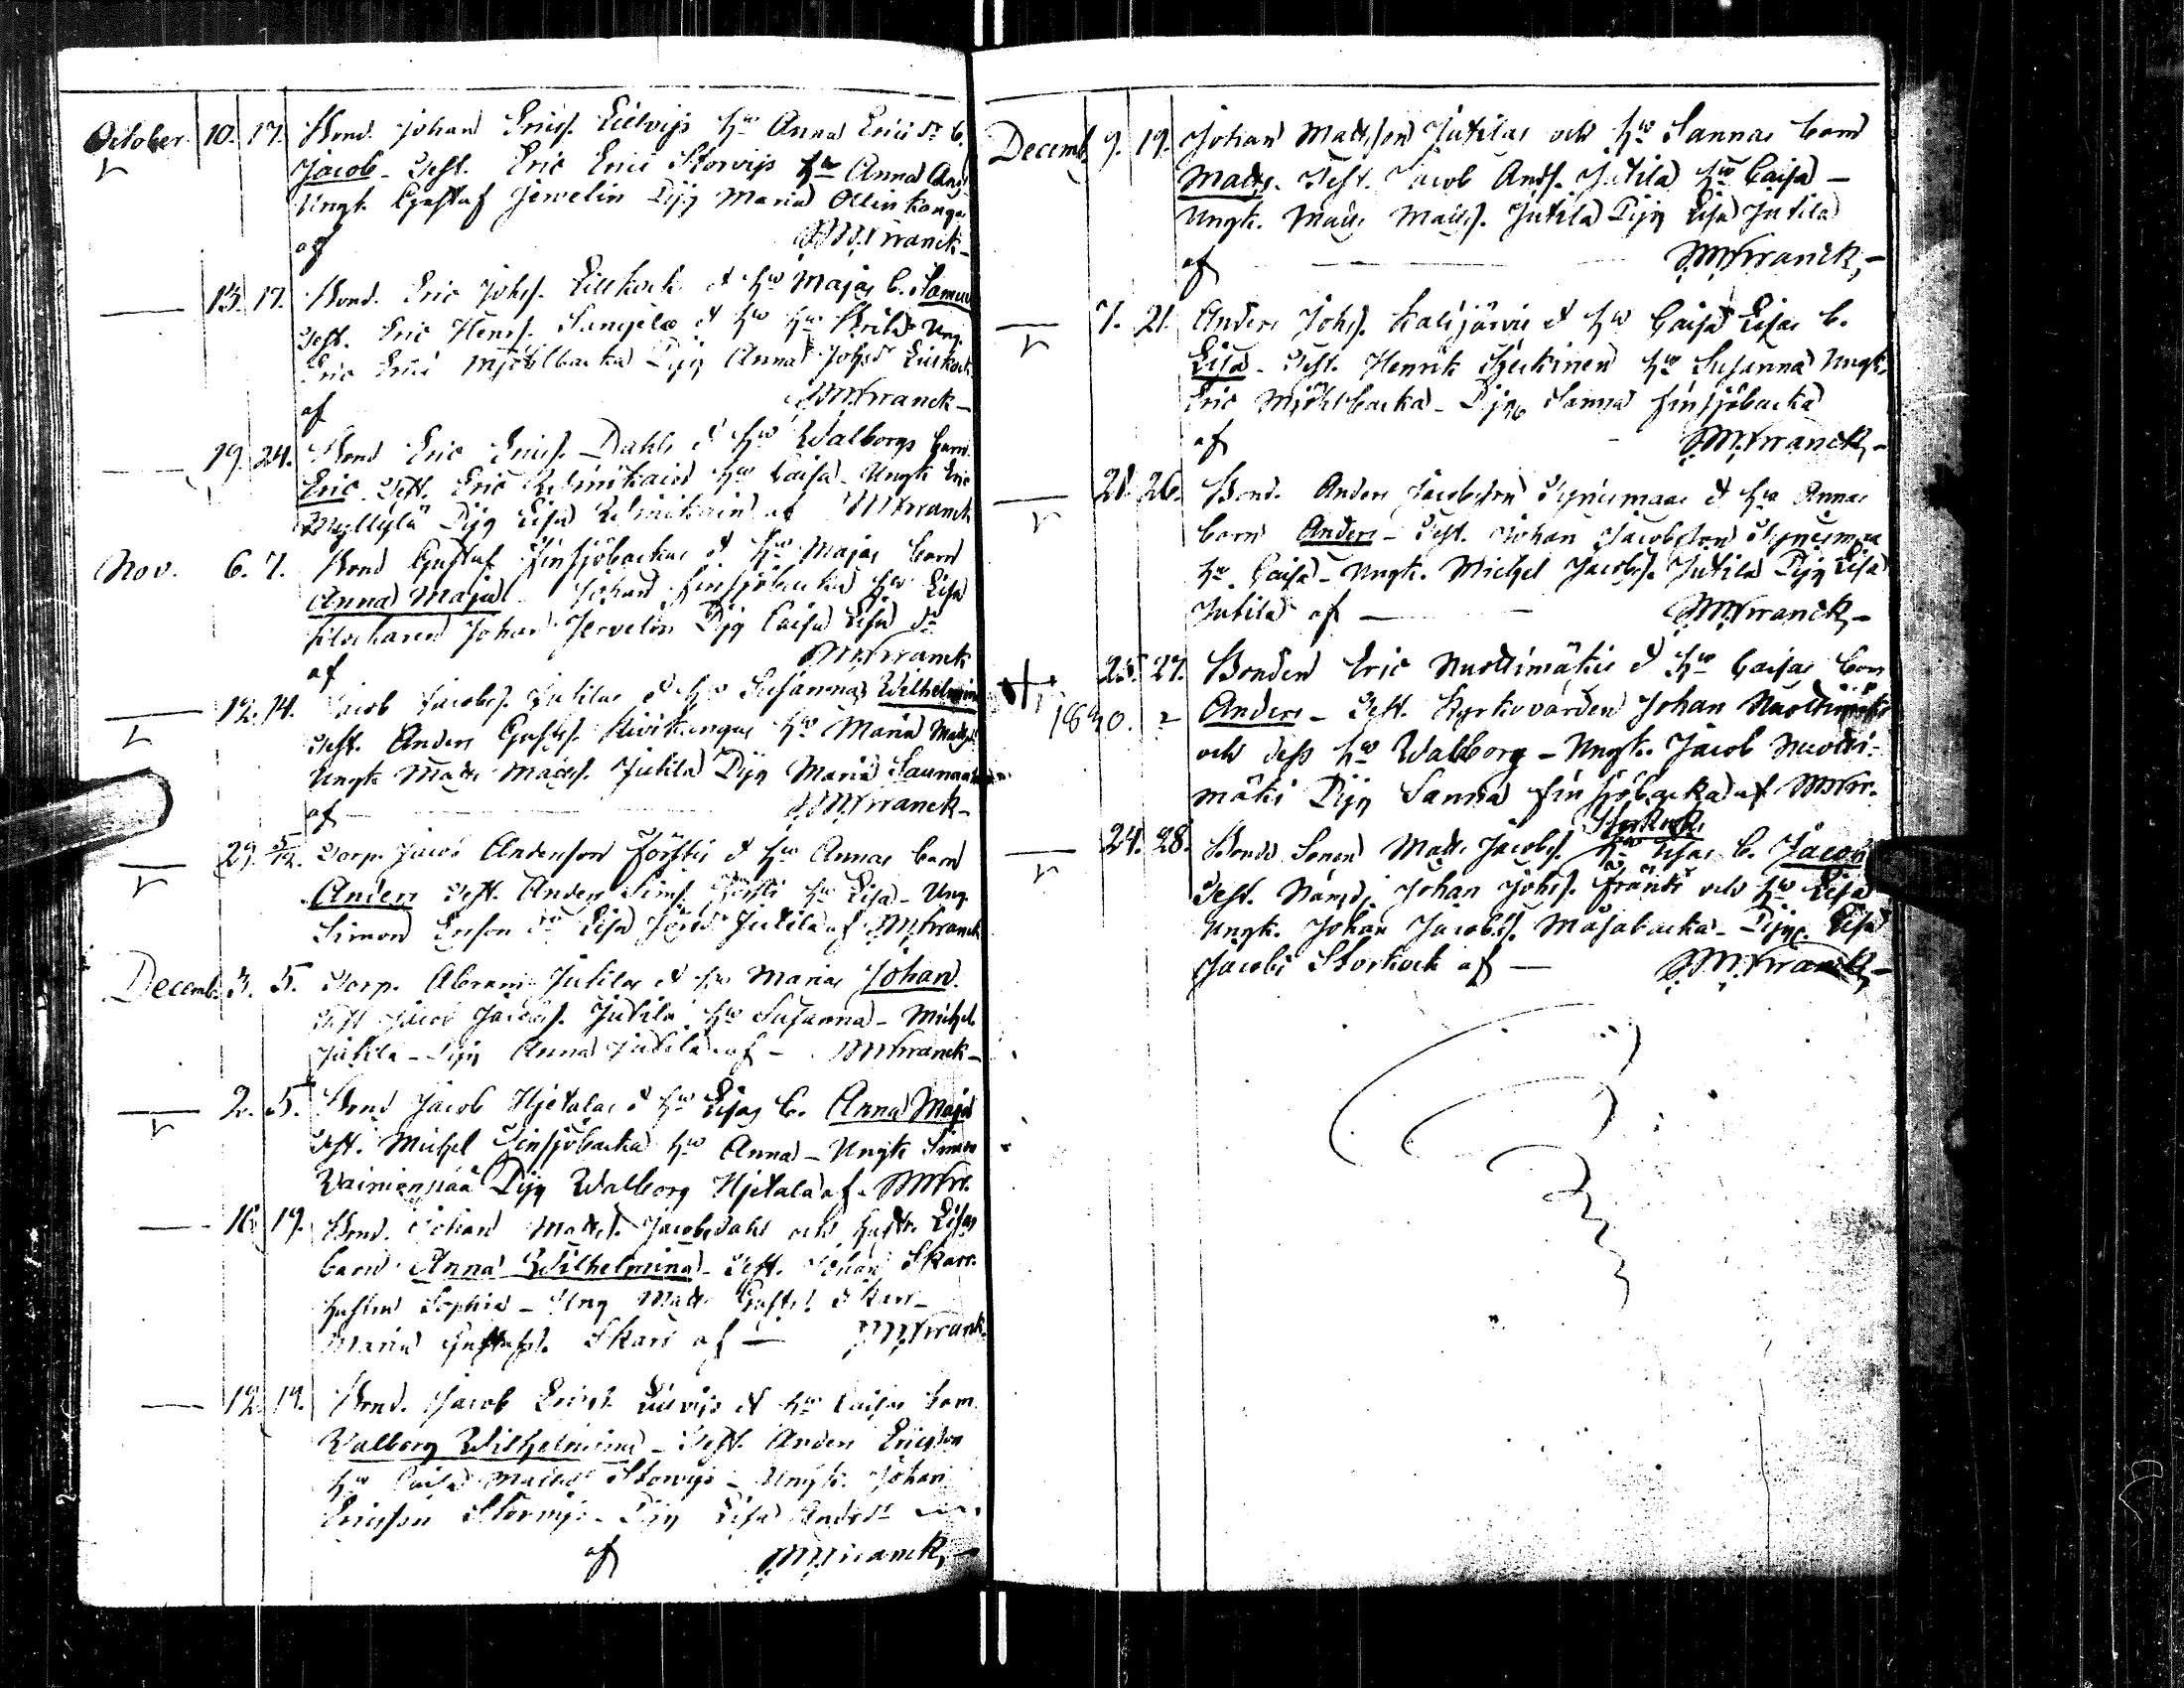 October 10. 17. Bond. Johan Erics. Lillvijs hu Anna Erici dr b.
Jacob - Test. Eric Erici Storvijs hu Anna And
Ungk. Gustaf Jervelin Pig Maria Ollinkangas
af M. Wranck -
13. 17. Bond. Eric Johs. Lillkock & hu Majas b. Samuel
Test. Eric Henrs. hu Brita Ung.
Eric Erici Mjölbacka Pig Anna Johsdr Lillkock
af M. Wranck -
19. 24. Bond Eric Erics. Dahls & hu Walborgs barn
Eric. Test. Eric hu Caisa - Ungk Eric
Myllylä Pig Lisa af M Wranck
Nov. 6. 7. Bond Gustaf Finsjöbackas & hu Majas barn
Anna Maja Johan Finsjöbacka hu Lisa
Johan Jervelin Pig Caisa Lisa dr
af M. Wranck
12. 14. Jacob Jacobs. Jutilas & hu Susannas Wilhelmina
Test. Anders Gustfs. Kivikangas hu Maria Matts
Ungk Matts Matts. Jutila Pig Maria
af - M. Wranck -
29. 5/12. Torp. Jacob Anderson Förstis & hu Annas barn
Anders Test. Anders Sims. Försti hu Lisa - Ung.
Simon Ericson dr Lisa Jutila af M. Wranck
Decemb. 3. 5. Torp. Abram Jutilas & hu Marias Johan.
Test Jacob Jacobs. Jutila hu Susanna - Michel
Jutila - Pig Anna Jutila af - M Wranck -
2. 5. Bond Jacob Hjetalas & hu Lisas b. Anna Maja
Test. Michel Finsjöbacka hu Anna - Ungk Simon
Wainionpää Pig Walborg Hjetala af - M Wr.
16. 19. Bond. Johan Matts. Jacobsdahls och hustr. Lisas
barn Anna Wilhelmina - Test. Johan Skars
hustru Sophia - Ung Matts Gustfs. Skars -
Maria Gustafs. Skars af - M. Wranck.
12. 19. Bond. Jacob Erics. Lillvijs & hu Caisas barn
Walborg Wilhelmina - Test. Anders Ericson
hu Caisa Matts Storvijs - Ungk. Johan
Ericson Storvijs - Pig Lisa Andsdr
af M. Wranck, -
Decemb. 9. 19. Johan Mattsson Jutilas och hu Sannas barn
Matts. Test. Jacob Ands. Jutila hu Caisa -
Ungk. Matts Matts. Jutila Pig Lisa Jutila
af - M. Wranck, -
7. 21. Anders Johs. Kalijärvis & hu Caisa Lisas b.
Lisa - Test. Henrik hu Susanna Ungk.
Eric Mjölbacka - Pig Sanna Finsjöbacka
af - M. Wranck, -
21. 26. Bond. Anders Jacobsson Tynismaas & hu Annas
barn Anders - Test. Johan Jacobsson Tynismaa
hu Caisa - Ungk. Michel Jacobs. Jutila Pig Lisa
Jutila af - M. Wranck, -
25. 27. Bonden Eric Nuottimäkis & hu Caisas barn
1840. 2 Anders - Test. Kyrkovärden Johan Nuottimäki
och dess hu Walborg - Ungk. Jacob Nuotti-
mäki Pig Sanna Finsjöbacka af M Wr.
Storkock
24. 28. Bonde Sonen Matts Jacobs. hu Lisas b. Jacob
Test. Nämdm Johan Johs. Fränti och hu Lisa
Ungk. Johan Jacobs. Måsabacka - Pig. Lisa
Jacobs Storkock af - M. Wranck, -